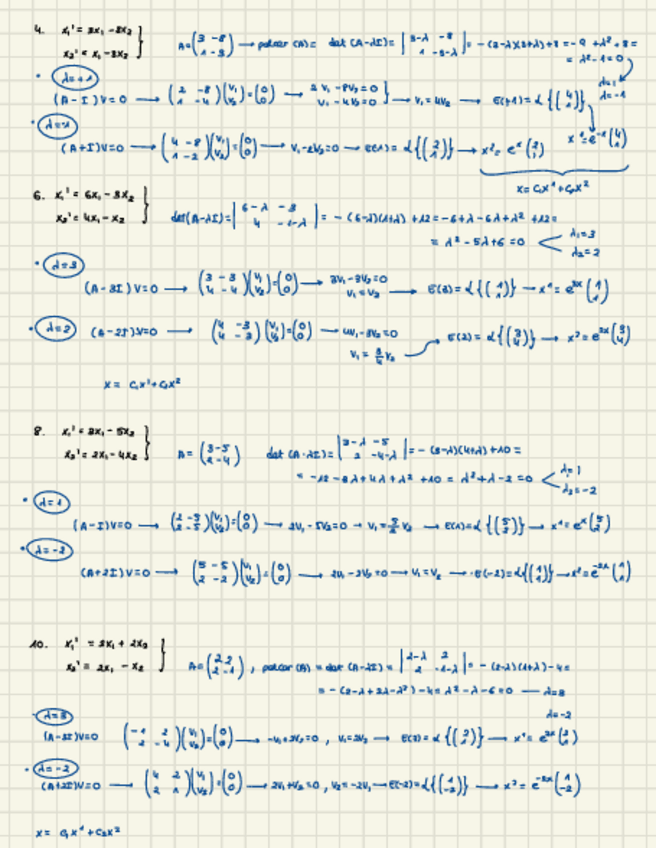 4. x₁' = 3x₁ - 8x₂
x₂' = x₁ - 3x₂
A = (3 -8 / 1 -3) → det (A-λI) = |3-λ -8 / 1 -3-λ| = -(3-λ)(3+λ)+8 = -9 + λ² + 8 =
= λ²-1=0
λ=1
λ=-1
λ=+1
(A-I)V=0 → (2 -8 / 1 -4)(V₁ / V₂)=(0 / 0) → 2V₁-8V₂=0 / V₁-4V₂=0 → V₁=4V₂ → E(+1)=α{(4 / 1)}
(A+I)V=0 → (4 -8 / 1 -2)(V₁ / V₂)=(0 / 0) → V₁-2V₂=0 →
x = C₁x¹+C₂x²
6. x₁' = 6x₁ - 3x₂
x₂' = 4x₁ - x₂
det(A-λI)= |6-λ -3 / 4 -1-λ| = -(6-λ)(1+λ)+12=-6+λ-6λ+λ²+12=
= λ²-5λ+6=0
λ₁=3
λ₂=2
λ=3
(A-3I)V=0 → (3 -3 / 4 -4)(V₁ / V₂)=(0 / 0) → 3V₁-3V₂=0 / V₁=V₂ → E(3)=α{(1 / 1)} → x¹=e³ˣ(1 / 1)
λ=2
(A-2I)V=0 → (4 -3 / 4 -3)(V₁ / V₂)=(0 / 0) → 4V₁-3V₂=0
V₁=3/4 V₂ → E(2)=α{(3 / 4)} → x²=e²ˣ(3 / 4)
x = C₁x¹+C₂x²
8. x₁' = 3x₁ - 5x₂
x₂' = 2x₁ - 4x₂
A = (3 -5 / 2 -4) det (A-λI)= |3-λ -5 / 2 -4-λ| = -(3-λ)(4+λ)+10=
= -12-3λ+4λ+λ²+10 = λ²+λ-2=0
λ₁=1
λ₂=-2
λ=1
(A-I)V=0 → (2 -5 / 2 -5)(V₁ / V₂)=(0 / 0) → 2V₁-5V₂=0 → V₁=5/2 V₂ → E(1)=α{(5 / 2)} → x¹=eˣ(5 / 2)
λ=-2
(A+2I)V=0 → (5 -5 / 2 -2)(V₁ / V₂)=(0 / 0) → 2V₁-2V₂=0 → V₁=V₂ → E(-2)=α{(1 / 1)} → x²=e⁻²ˣ(1 / 1)
10. x₁' = 2x₁ + 2x₂
x₂' = 2x₁ - x₂
A=(2 2 / 2 -1), = det (A-λI) = |2-λ 2 / 2 -1-λ| = -(2-λ)(1+λ)-4=
= -(2-λ+2λ-λ²)-4=λ²-λ-6=0 — λ=3
λ=-2
λ=3
(A-3I)V=0 (-1 2 / 2 -4)(V₁ / V₂)=(0 / 0) → -V₁+2V₂=0, V₁=2V₂ → E(3)=α{(2 / 1)} → x¹=e³ˣ(2 / 1)
λ=-2
(A+2I)V=0 → (4 2 / 2 1)(V₁ / V₂)=(0 / 0) → 2V₁+V₂=0, V₂=-2V₁ → E(-2)=α{(1 / -2)} → x²=e⁻²ˣ(1 / -2)
x = C₁x¹+C₂x²